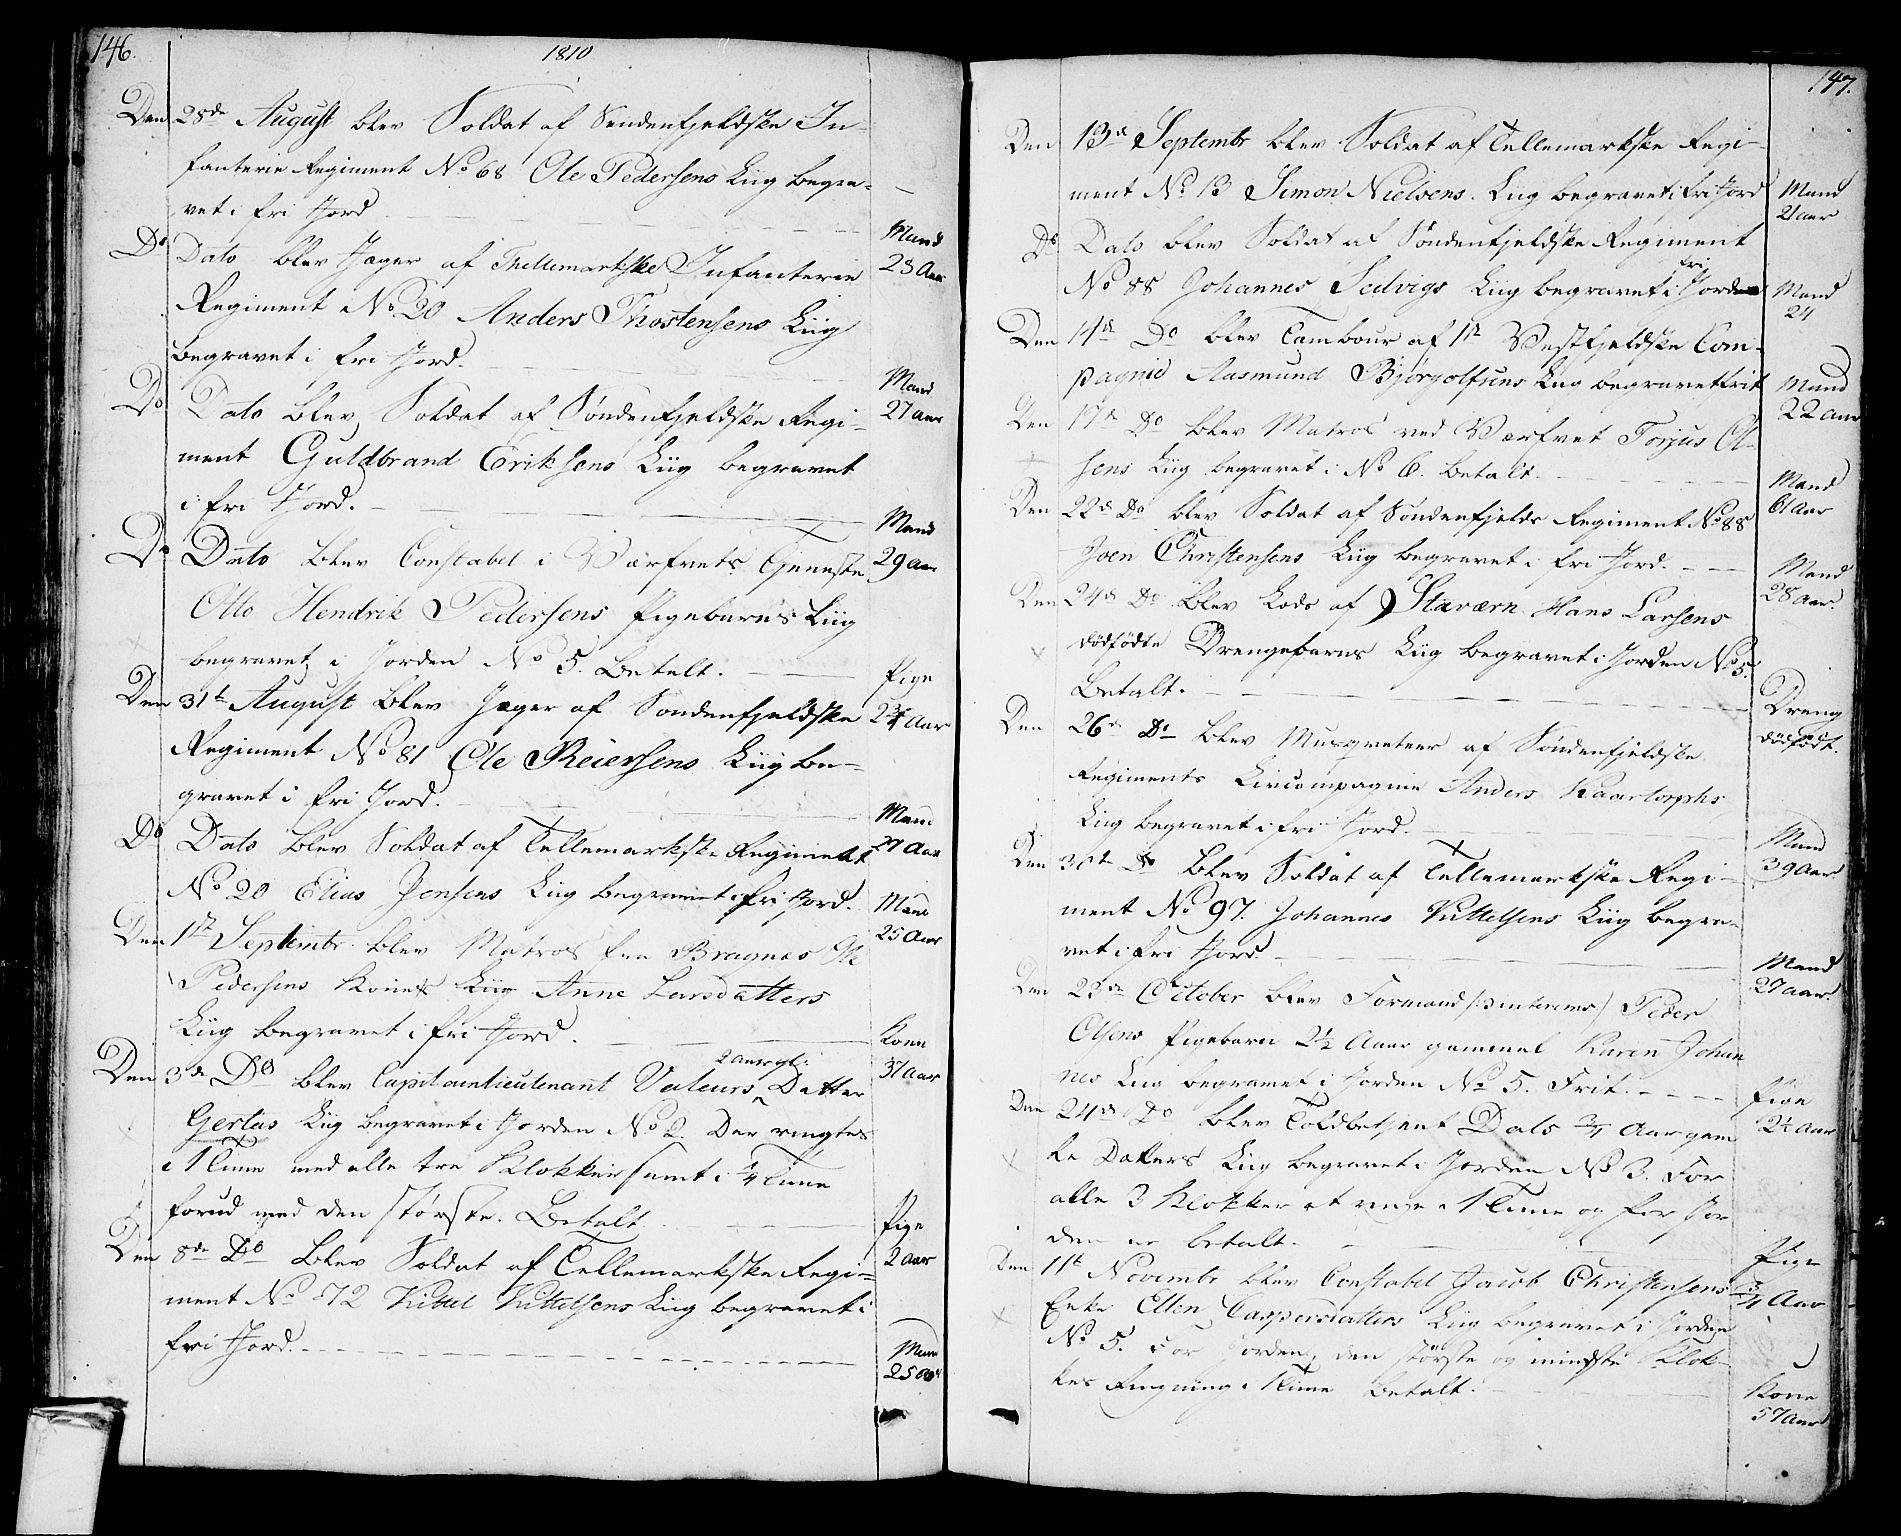 146.
1810
Den 28de August blev Soldat af Søndenfjeldske In-
fanterie Regiment No 68 Ole Pedersens Liig begra-
vet i fri Jord
Mand
23 Aar
Do Dato blev Jæger af Thellemarkske Infanterie
Regiment No 20 Anders Thostensens Liig
begravet i fri Jord.
Mand
27 aar
Do Dato blev Soldat af Søndenfjeldske Regi-
ment Guldbrand Eriksens Liig begravet
i fri Jord.
Mand
29 aar
Do Dato blev Constabel i Værfvets Tjeneste
Otto Hendrik Pedersens Pigebarns Liig
begravet i Jorden No 5. Betalt.
Pige
2 3/4 Aar
Den 31te August blev Jæger af Søndenfjeldske
Regiment No 81 Ole Reiersens Liig be-
gravet i fri Jord.
Mand
27 Aar
Do Dato blev Soldat af Tellemarkske Regiment
No 20 Elias Jensens Liig begravet i fri Jord.
Mand
25 Aar
Den 1te Septembr blev Matros fra Bragnes Ole
Pedersens Kones Liig Anne Larsdatters
Liig begravet i fri Jord.
Kone
37 Aar
2 aar gl:
Den 3de Do blev Capitainlieutenant Valeurs Datter
Gertas Liig begravet i Jorden No 2. Der ringtes
i 1 Time med alle tre Klokker samt i 1/4 Time
forud med den største. Betalt
Pige
2 Aar
Den 8de Do blev Soldat af Tellemarkske Regi-
ment No 72 Kittel Kittelsens Liig begravet i
fri Jord.
Mand
25 aar
147.
Den 13de Septembr blev Soldat af Tellemarkske Regi-
ment No 13 Simon Nielsens Liig begravet i fri Jord
Mand
21 aar
Do Dato blev Soldat af Søndenfjeldske Regiment
No 88 Johannes Sedvigs Liig begravet i fri Jord
Mand
24
Den 14de Do blev Tambour af 1te Vestfjeldske Com-
pagnie Aasmund Bjørgolfsens Liig begravet frit
Mand
22 aar
Den 17de Do blev Matros ved Værfvet Torjus Ol-
sens Liig begravet i No 6. Betalt
Mand
61 aar
Den 22de Do blev Soldat af Søndenfjelds Regiment No 88
Joen Christensens Liig begravet i fri Jord.
Mand
28 aar.
Den 24de Do blev Lods af Staværn Hans Larsens
dødfødte Drengebarns Liig begravet i Jorden No 5.
Betalt.
Dreng
dødfødt.
Den 26de Do blev Musqveteer af Søndenfjeldske
Regiments Livcompagnie Anders Kaartorphs
Liig begravet i fri Jord.
Mand
39 aar
Den 30te Do blev Soldat af Tellemarkske Regi-
ment No 97. Johannes Kittelsens Liig begra-
vet i fri Jord
Mand
27 aar.
Den 23de October blev Formand (:p interems:) Peder
Olsens Pigebarn 2 1/2 Aar gammel Karen Johan
nes Liig begravet i Jorden No 5. Frit.
Pige
2 1/2 Aar
Den 24de Do blev Toldbetjent Dals 3/4 Aar gam
le Datters Liig begravet i Jorden No 3. For
alle 3 Klokker at ringe 1 Time og for Jor
den er betalt.
Pige
3/4 Aar
Den 11te Novembr blev Constabel Jacob Christensens
Enke Ellen Caspersdatters Liig begravet i Jorden
No 5. For Jorden, den største og mindste Klok-
kes Ringning 1 Time betalt.
Kone
57 aar